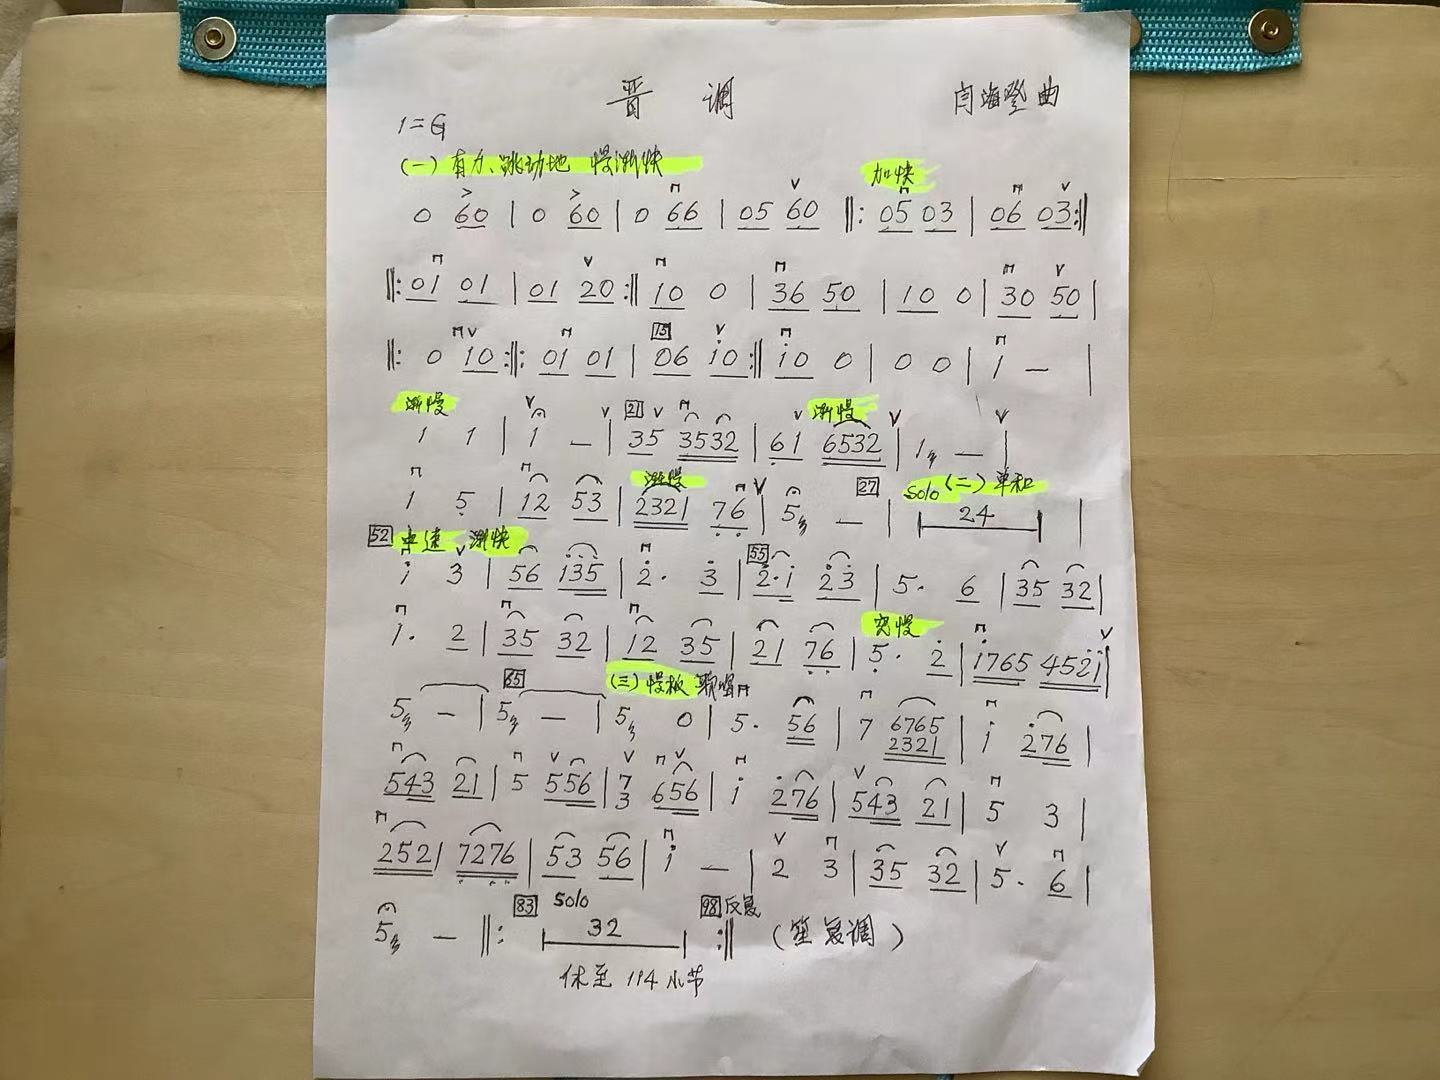 晋调
闫海登曲
1=G
(一)有力、跳动地 慢渐快 加快
0 60 | 0 60 | 0 66 | 05 60 ‖: 05 03 | 06 03 :‖
‖: 01 01 | 01 20 :‖ 10 0 | 36 50 | 10 0 | 30 50 |
‖: 0 10 :‖: 01 01 | 15 06 i0 :‖ i0 0 | 0 0 | 1 — |
渐慢 21 渐慢
1 1 | 1 — | 35 3532 | 61 6532 | 1 — |
渐慢 27 solo (二)单和
1 5 | 12 53 | 2321 76 | 5 — | 24 |
52 中速 渐快 55
i 3 | 56 i35 | 2· 3 | 2·i 23 | 5· 6 | 35 32 |
突慢
1· 2 | 35 32 | 12 35 | 21 76 | 5· 2 | i765 452i |
65 (三)慢板 歌唱
5 — | 5 — | 5 0 | 5· 56 | 7 6765 2321 | i 276 |
543 21 | 5 556 | 7 3 656 | i 276 | 543 21 | 5 3 |
252 | 7276 | 53 56 | i — | 2 3 | 35 32 | 5· 6 |
83 solo 98 反复
5 — ‖: 32 :‖ (笙复调)
休至 114 小节